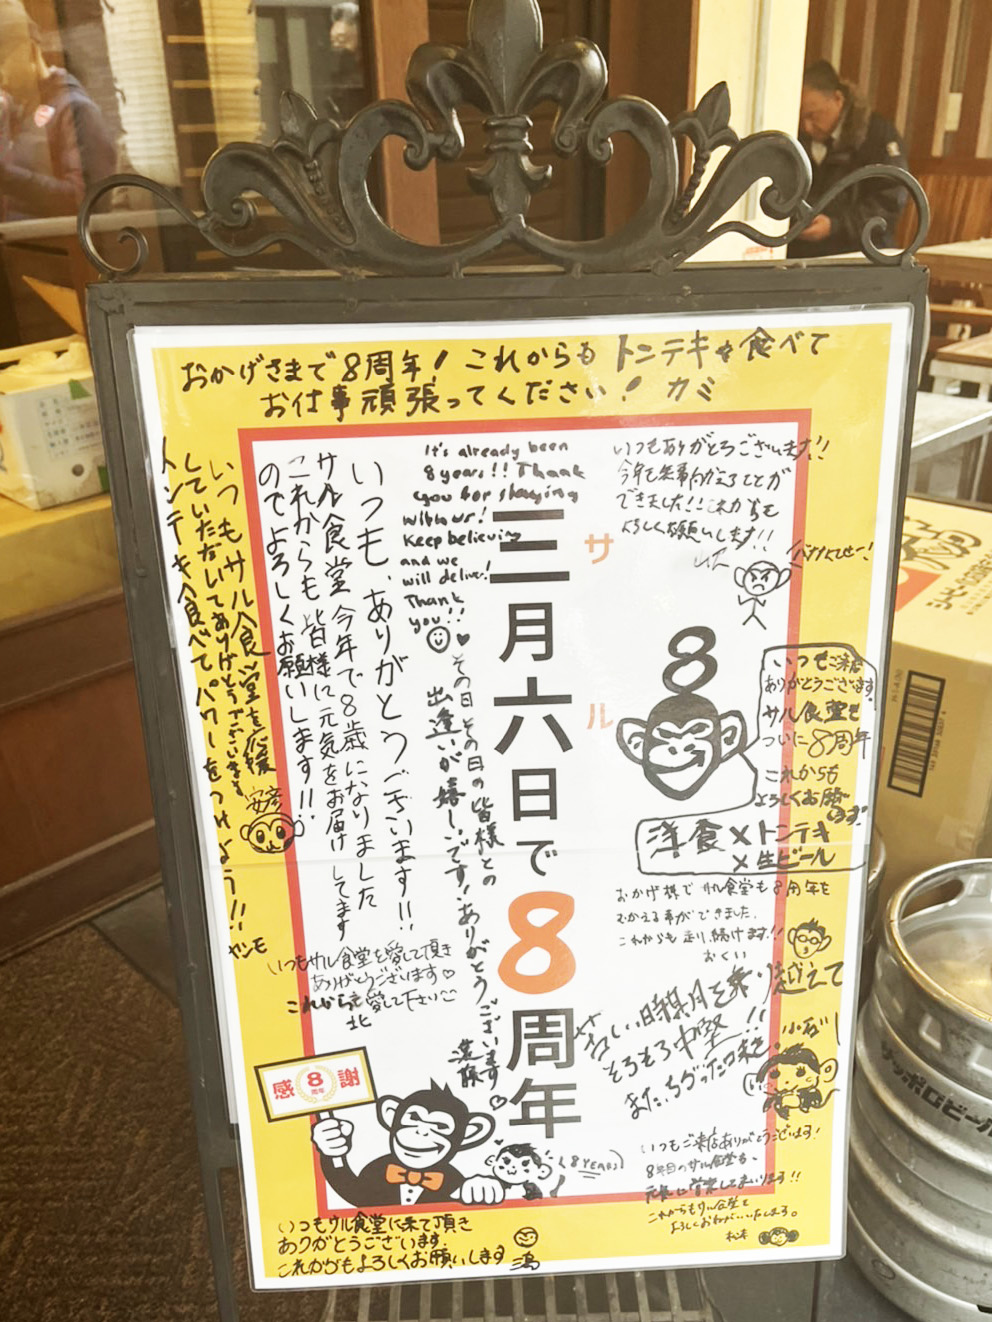 おかげさまで8周年! これからもトンテキを食べて
お仕事頑張ってください! カミ
It's already been
8 years!! Thank
you for staying
with us!
Keep believing
and we
will deliver!
Thank
you!!
いつもありがとうございます!!
今年も無事向かえることが
できました!! これからも
よろしくお願いします!!
三月六日で8周年
サル
8
いつもご来店
ありがとうございます。
サル食堂も
ついに8周年
これからも
よろしくお願
洋食×トンテキ
×生ビール
おかげ様でサル食堂も8周年を
むかえる事ができました。
これからも走り続けます!!
おくい
苦しい時期を乗り越えて
そろそろ中堅!!
小石
いつもご来店ありがとうございます!
8年目のサル食堂も、
これからもサル食堂を
よろしくおねがいいたします。
松本
その日その日の皆様との
出逢いが嬉しいです!ありがとうございます
いつも、ありがとうございます!!
サル食堂 今年で8歳になりました
これからも皆様に元気をお届けしてます
のでよろしくお願いします!!
いつもサル食堂を応援
していただいてありがとうございます
トンテキ食べてパワーをつけよう!!
ヤンモ
安彦
いつもサル食堂を愛して頂き
ありがとうございます♡
これからも愛して下さい
北
感8謝
周年
8 YEARS
いつもサル食堂に来て頂き
ありがとうございます。
これからもよろしくお願いします
サッポロビール